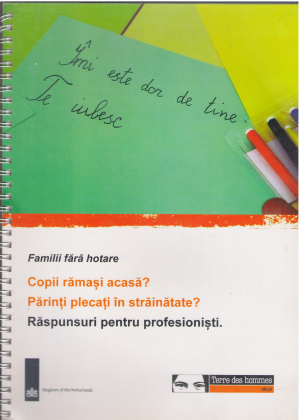 Îmi este dor de tine.
Te iubesc
Familii fără hotare
Copii rămași acasă?
Părinți plecați în străinătate?
Răspunsuri pentru profesioniști.
Kingdom of the Netherlands
Terre des hommes